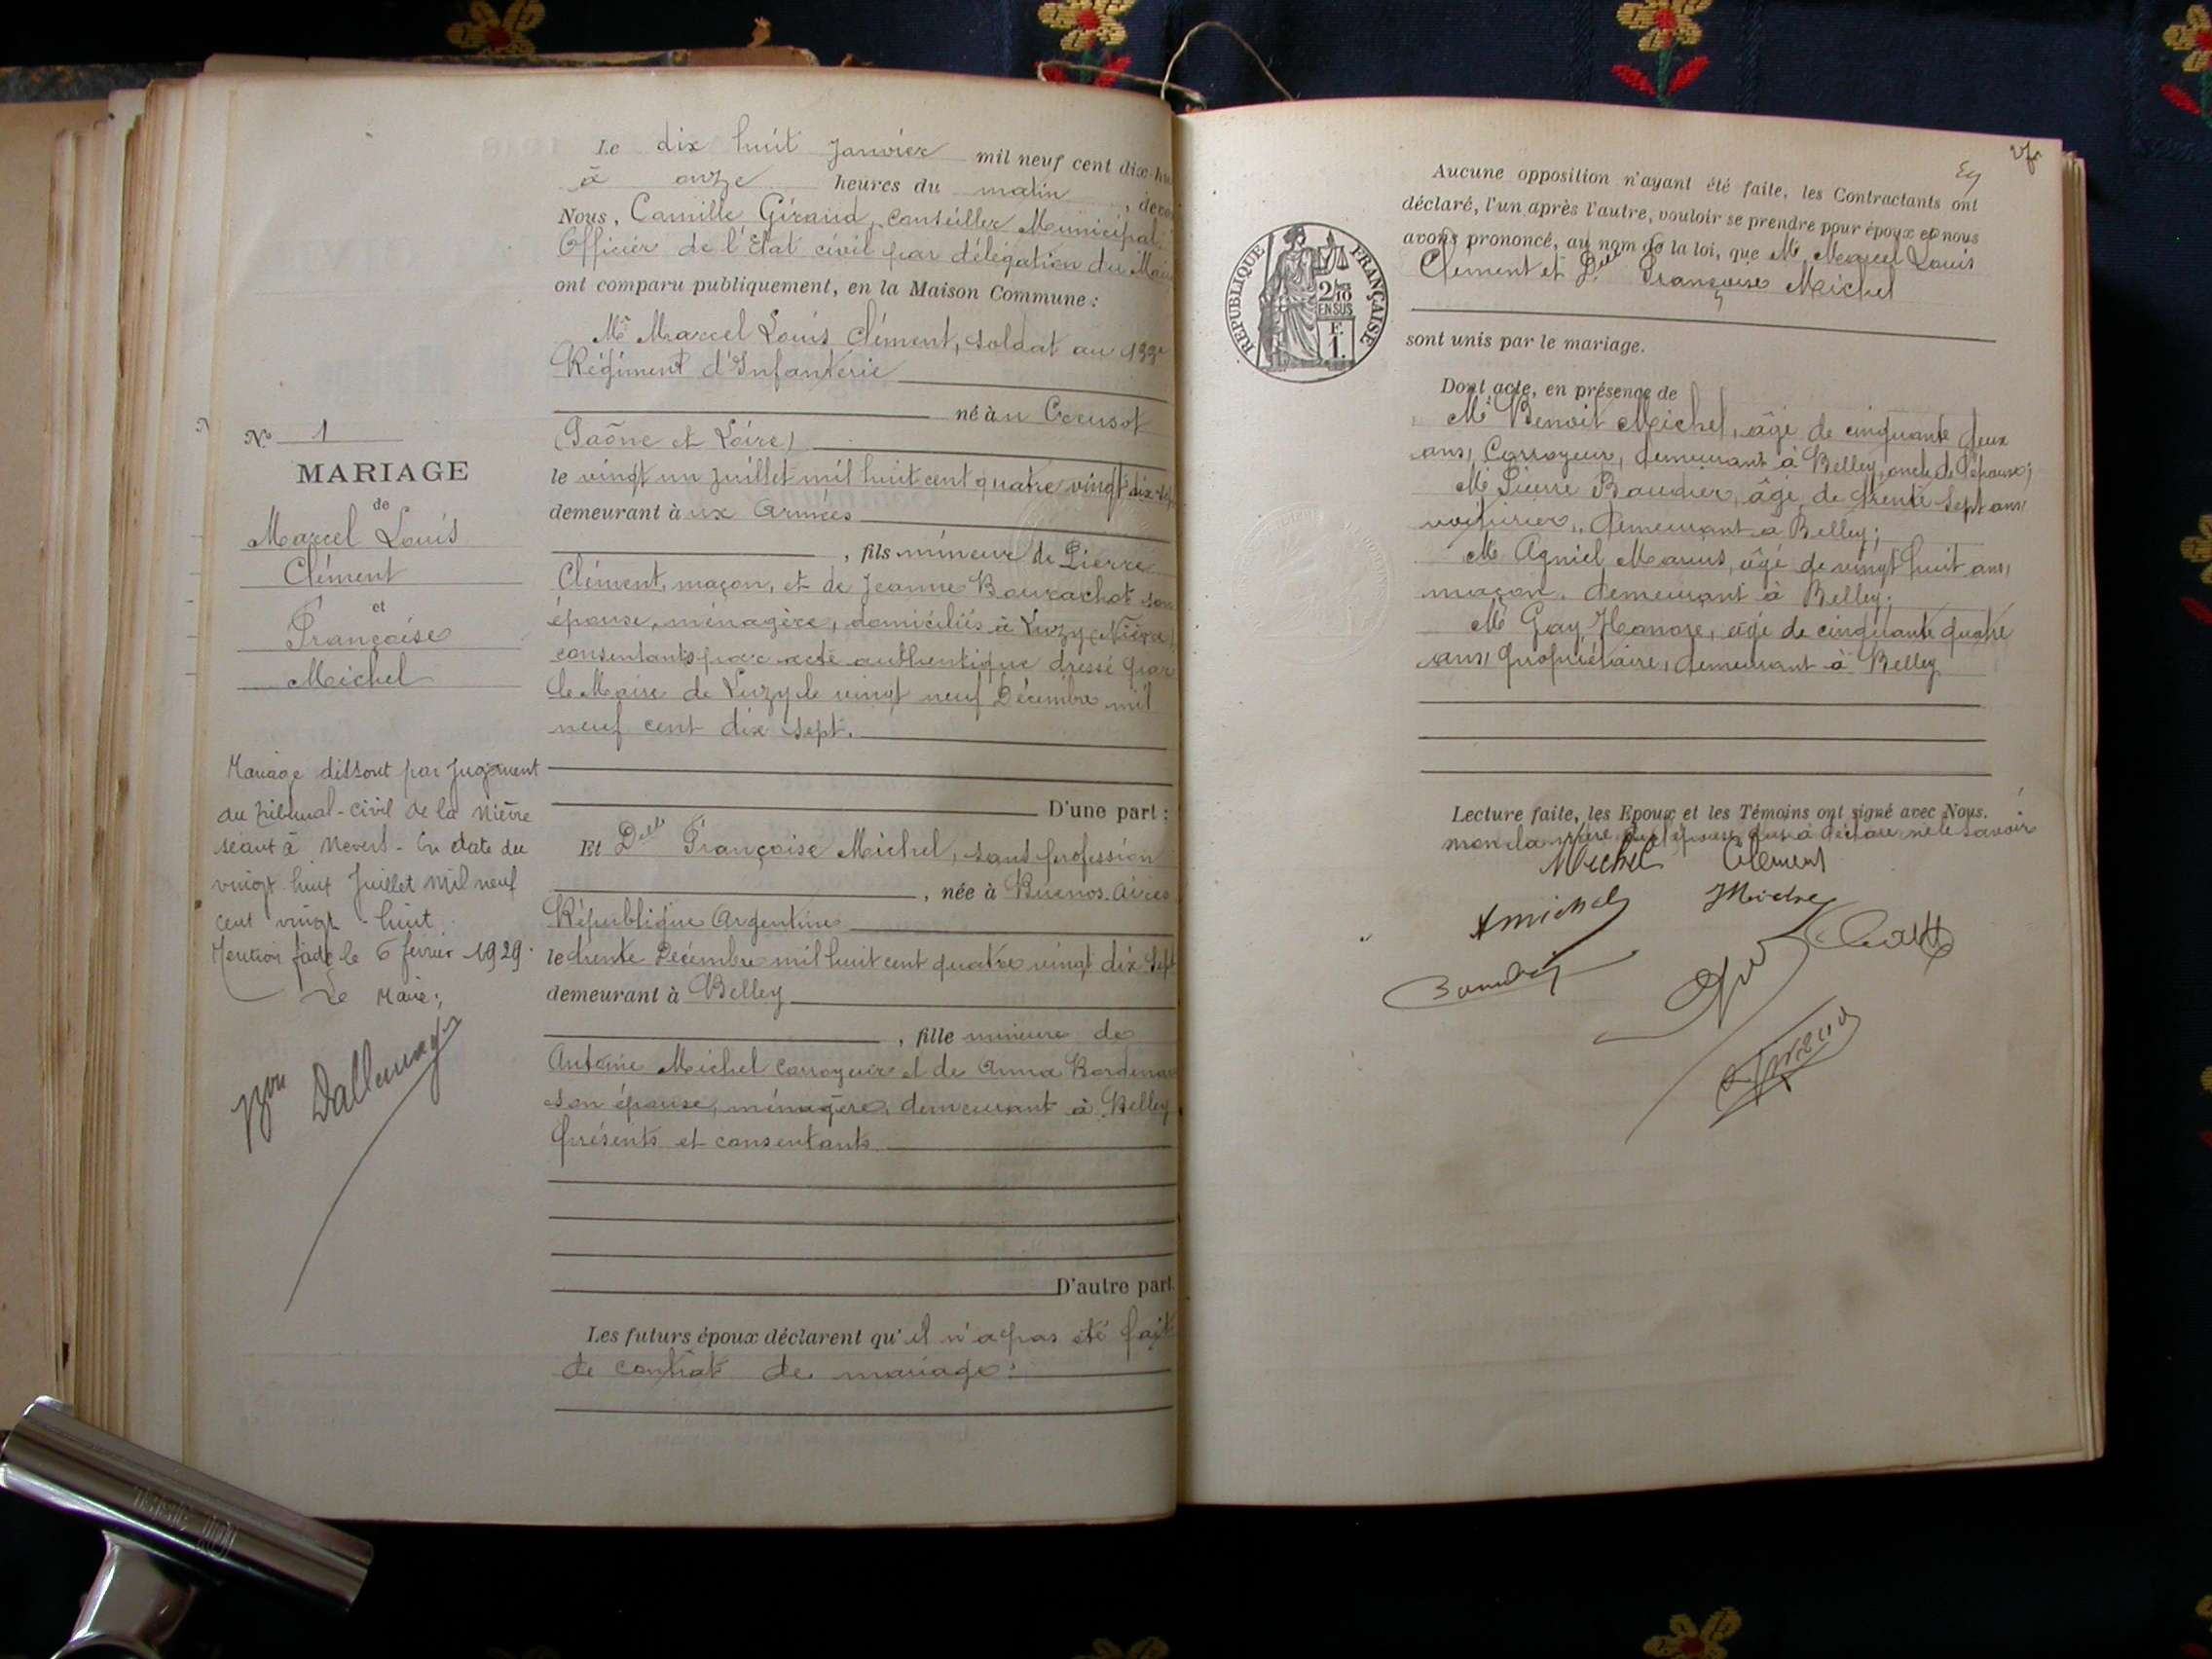 N° 1
MARIAGE
de
Marcel Louis
Clément
et
Françoise
Michel
Mariage dissout par Jugement
du tribunal-civil de la Nièvre
séant à Nevers - En date du
vingt huit Juillet mil neuf
cent vingt-huit
Mention faite le 6 février 1929.
Le Maire;
Le dix huit Janvier mil neuf cent dix-hu
à onze heures du matin, deva
Nous, Camille Giraud, Conseiller Municipal,
Officier de l'Etat civil par délégation du Mair
ont comparu publiquement, en la Maison Commune :
Mr Marcel Louis Clément, soldat au 133e
Régiment d'Infanterie
né à u Creusot
(Saône et Loire)
le vingt un Juillet mil huit cent quatre vingt dix-sept
demeurant à ux Armées
, fils mineur de Pierre
Clément, maçon, et de Jeanne son
épouse, ménagère, domiciliés à Luzy (Nièvre)
consentants par acte authentique dressé par
le Maire de Luzy le vingt neuf Décembre mil
neuf cent dix sept.
D'une part :
Et Delle Françoise Michel, sans profession
, née à Buenos-Aires
République Argentine
le trente Décembre mil huit cent quatre vingt dix sept
demeurant à Belley
, fille mineure de
Antoine Michel corroyeur et de Anna
son épouse, ménagère, demeurant à Belley
présents et consentants
D'autre part.
Les futurs époux déclarent qu'il n'a pas été fait
de contrat de mariage.
Aucune opposition n'ayant été faite, les Contractants ont
déclaré, l'un après l'autre, vouloir se prendre pour époux et nous
avons prononcé, au nom de la loi, que Mr Marcel Louis
Clément et Delle Françoise Michel
sont unis par le mariage.
REPUBLIQUE FRANÇAISE
2/10
EN SUS
F.
1.
Dont acte, en présence de
Mr Benoit Michel, âgé de cinquante deux
ans, Corroyeur, demeurant à Belley, oncle de l'épouse;
Mr Pierre Baudier, âgé de trente sept ans
voiturier, demeurant à Belley;
Mr Agniel Marius, âgé de vingt huit ans,
maçon, demeurant à Belley;
Mr Gay Honoré, âgé de cinquante quatre
ans, propriétaire, demeurant à Belley
Lecture faite, les Epoux et les Témoins ont signé avec Nous.
non la mère de l'épouse qui a déclaré ne le savoir
Michel Clément
A Michel